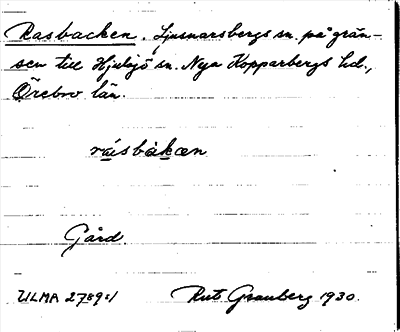 Rasbacken. Ljusnarsbergs sn. på grän-
sen till Hjulsjö sn. Nya Kopparbergs hd.,
Örebro län.
Gård
ULMA 2789:1 Rut Granberg 1930.